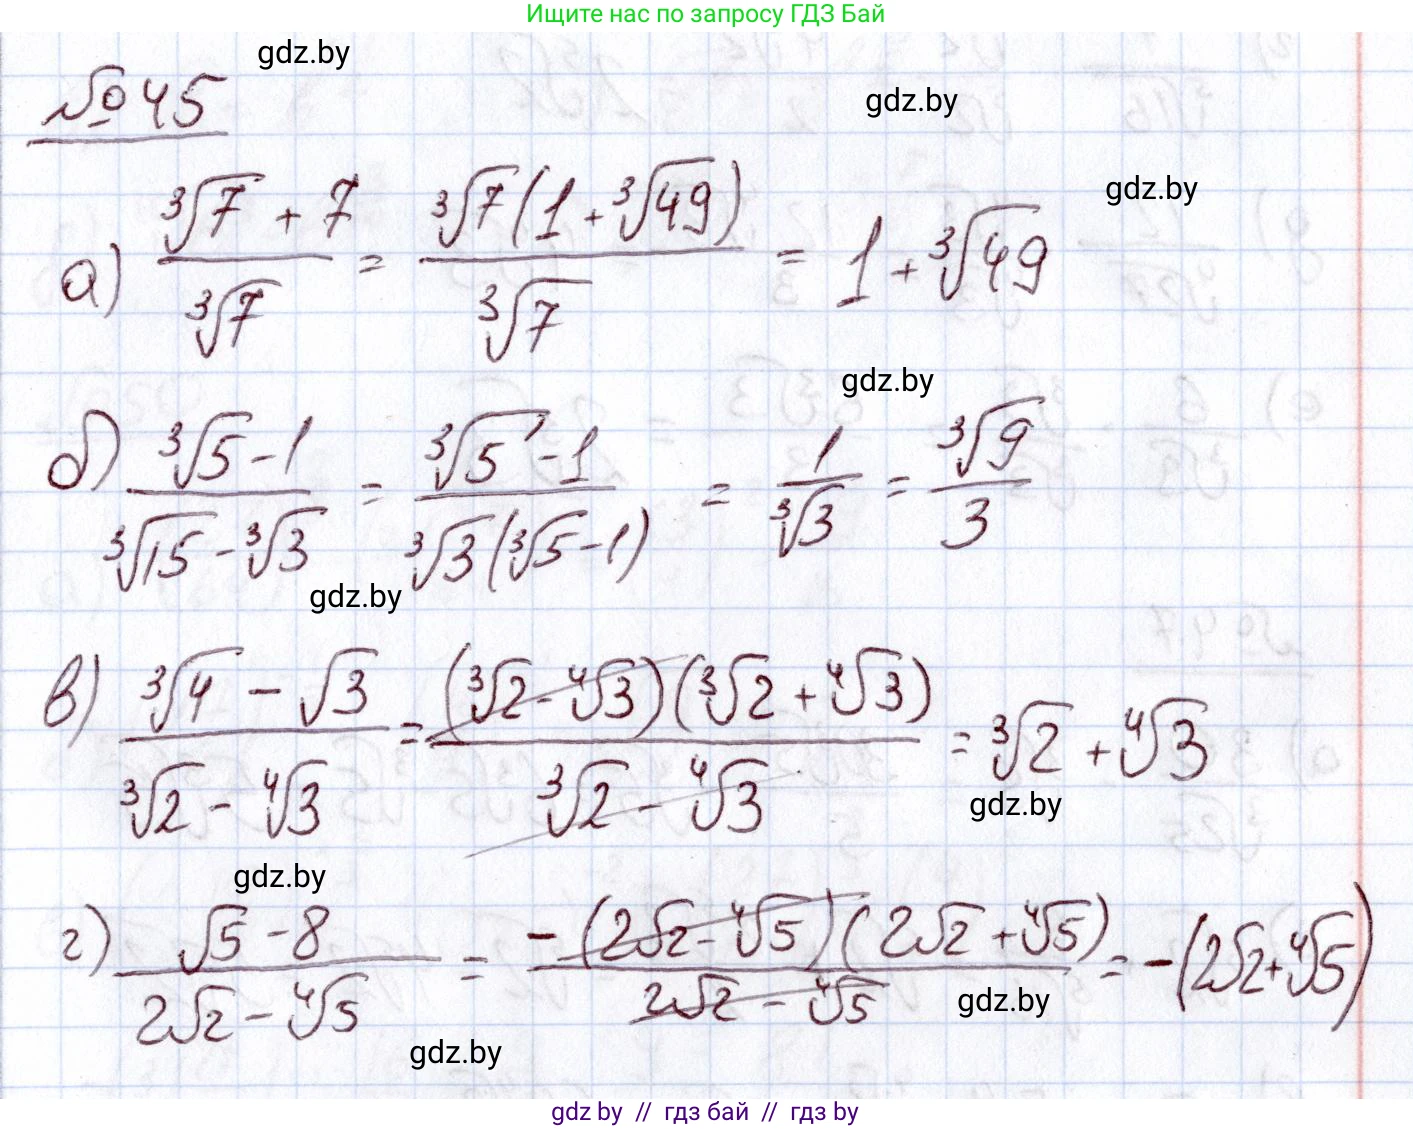 Ищите нас по запросу ГДЗ Бай
gdz.by
№45
gdz.by
gdz.by
а) (∛7 + 7)/∛7 = ∛7(1 + ∛49)/∛7 = 1 + ∛49
gdz.by
б) (∛5 - 1)/(∛15 - ∛3) = (∛5 - 1)/(∛3(∛5 - 1)) = 1/∛3 = ∛9/3
gdz.by
в) (∛4 - √3)/(∛2 - ∜3) = (∛2 - ∜3)(∛2 + ∜3)/(∛2 - ∜3) = ∛2 + ∜3
gdz.by
gdz.by
г) (√5 - 8)/(2√2 - ∜5) = -(2√2 - ∜5)(2√2 + ∜5)/(2√2 - ∜5) = -(2√2 + ∜5)
gdz.by
gdz.by
gdz by // гдз бай // гдз by